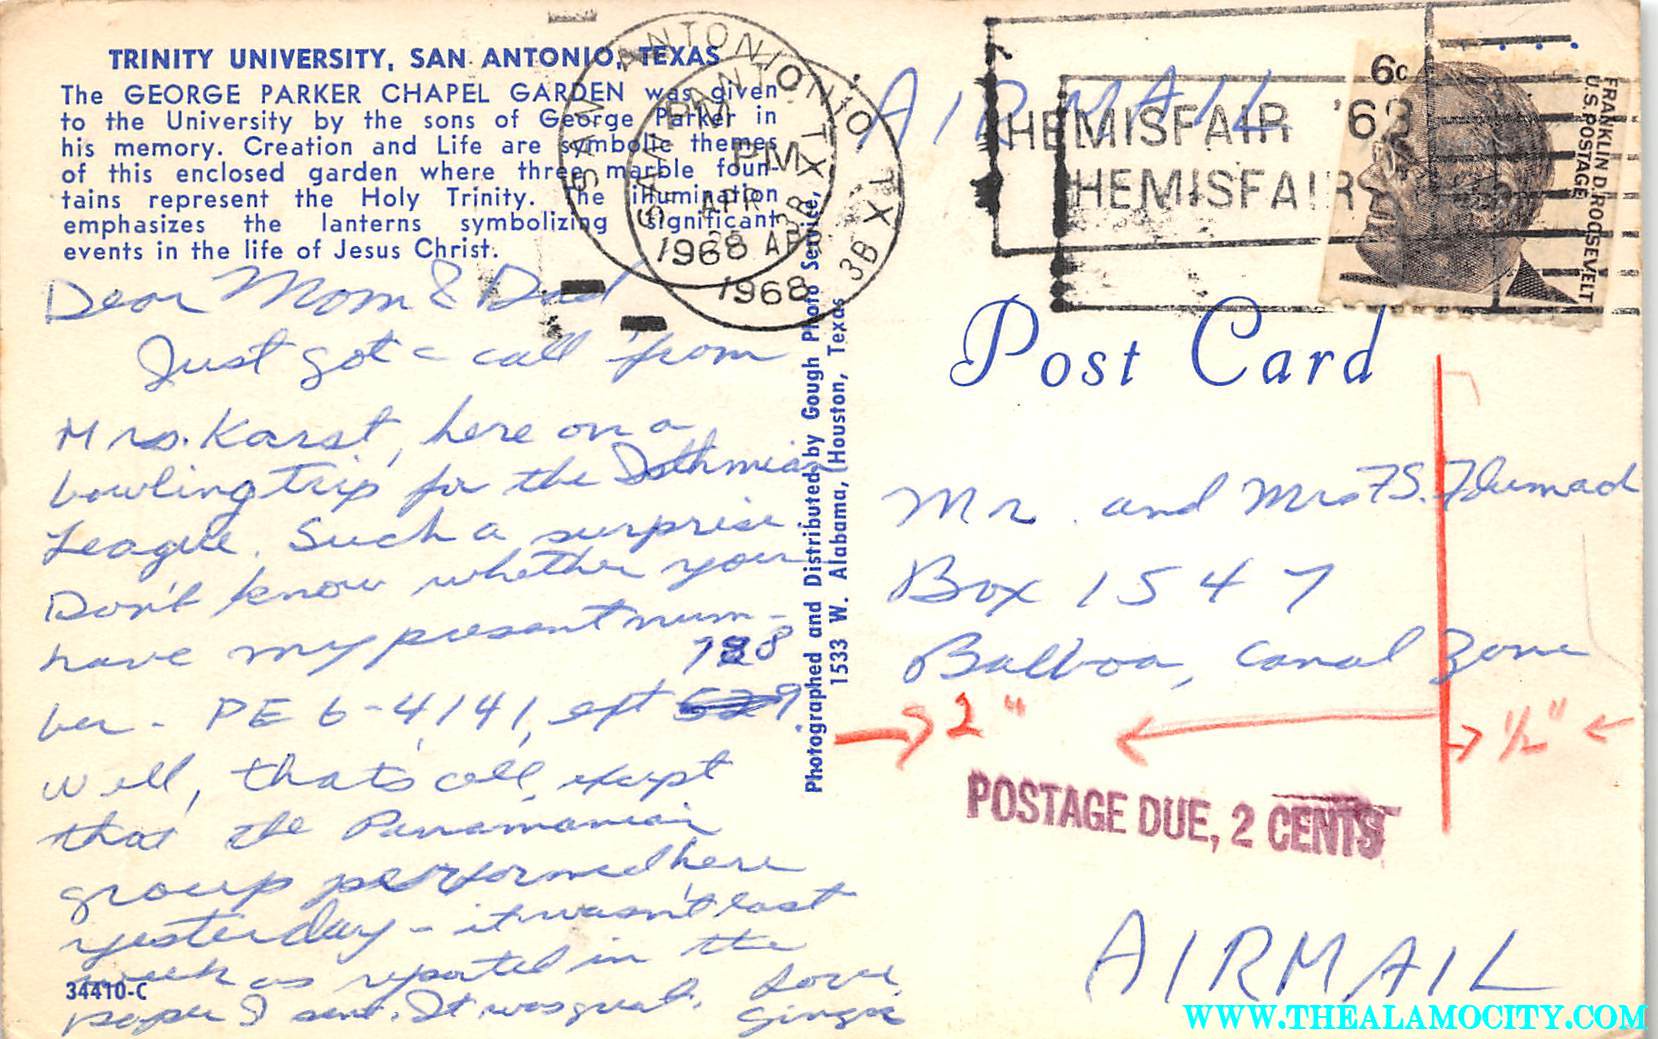 TRINITY UNIVERSITY, SAN ANTONIO, TEXAS
The GEORGE PARKER CHAPEL GARDEN was given
to the University by the sons of George Parker in
his memory. Creation and Life are symbolic themes
of this enclosed garden where three marble foun-
tains represent the Holy Trinity. The illumination
emphasizes the lanterns symbolizing significant
events in the life of Jesus Christ.
SAN ANTONIO, TX
PM
APR
1968
3B
SAN ANTONIO TX
PM
APR
1968
3B
HEMISFAIR '68
HEMISFAIR
6c
FRANKLIN D. ROOSEVELT
U.S. POSTAGE
AIRMAIL
Post Card
Dear Mom & Dad
Just got a call from
Mrs. Karst, here on a
bowling trip for the Isthmian
League. Such a surprise
Don't know whether you
have my present num-
788
ber - PE 6-4141, ext
Well, that's all, except
that the Panamanian
group performed here
yesterday - it wasn't last
week as reported in the
paper I sent. It was great.
Love,
Ginger
34410-C
Photographed and Distributed by Gough Photo Service,
1533 W. Alabama, Houston, Texas
Mr. and Mrs F.S.
Box 1547
Balboa, Canal Zone
2"
1/2"
POSTAGE DUE, 2 CENTS
AIRMAIL
WWW.THEALAMOCITY.COM